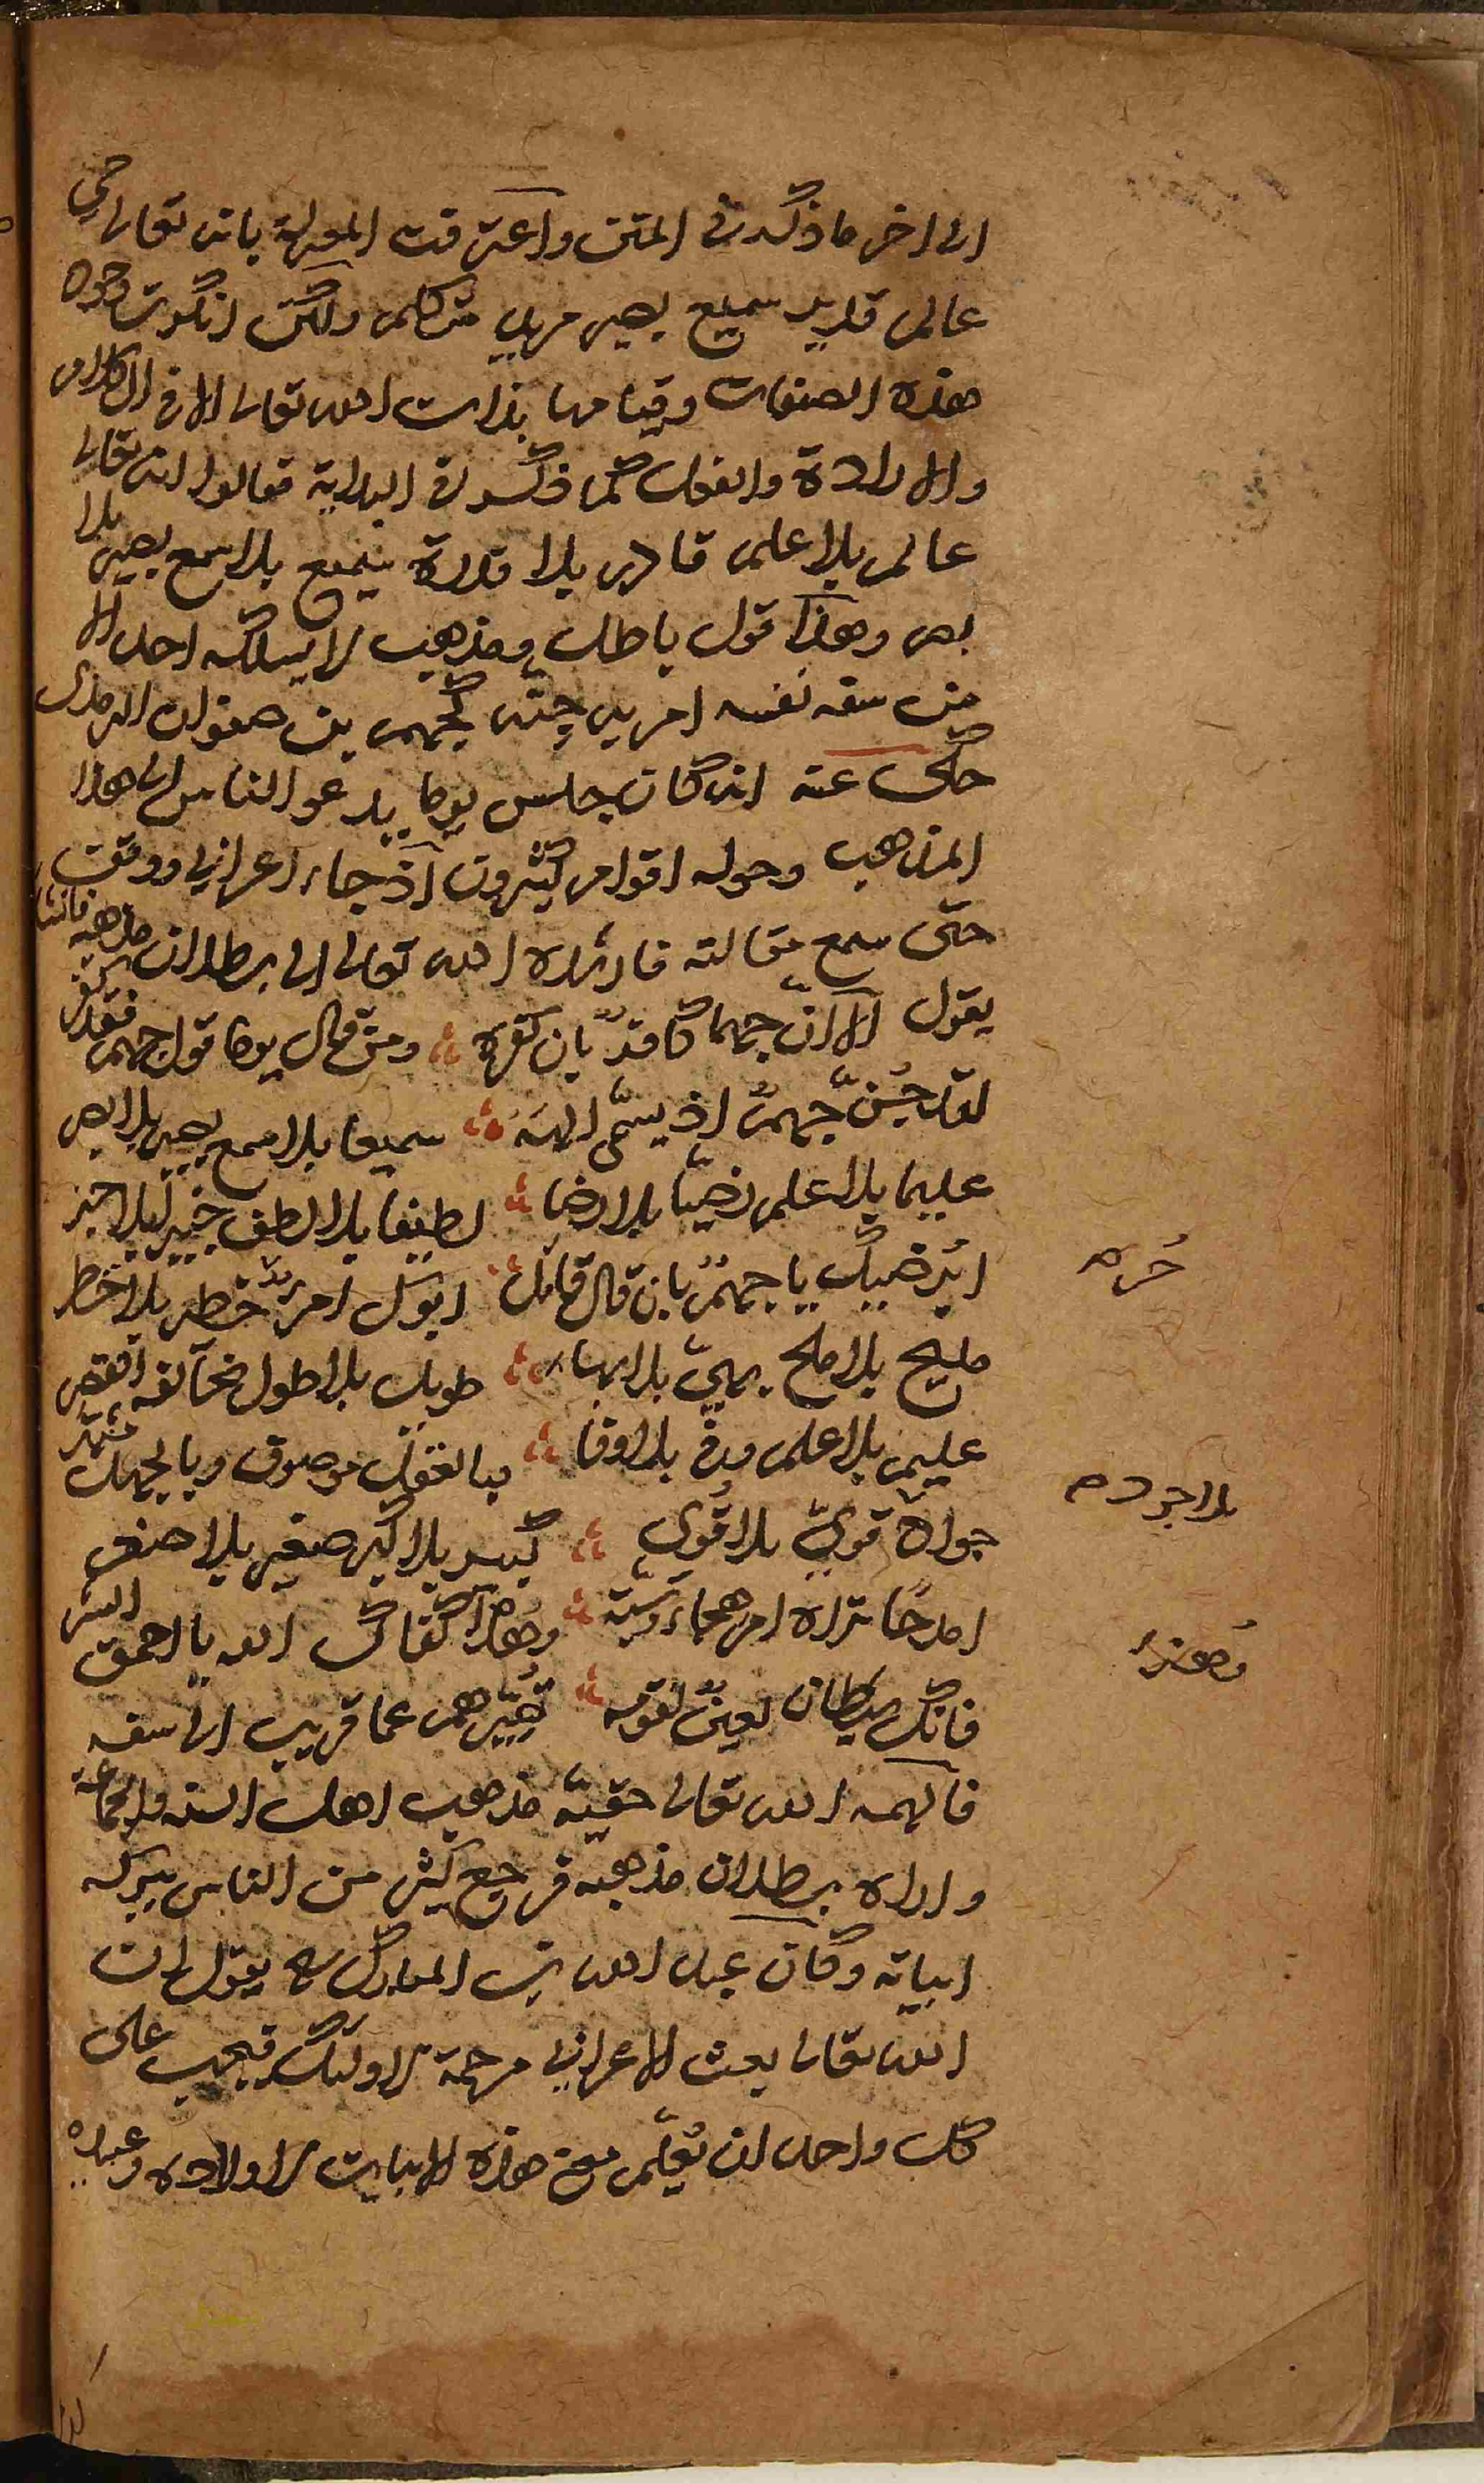 الى اخر ما ذكر في المتن واعترفت المعتزلة بانه تعالى حي
عالم قدير سميع بصير مريد متكلم ولكن انكرت وجود
هذه الصفات وقيامها بذات الله تعالى الا في الكلام
والارادة والفعل كما ذكر في البداية فقالوا انه تعالى
عالم بلا علم قادر بلا قدرة سميع بلا سمع بصير بلا
بصر وهذا قول باطل ومذهب لا يسلكه احد الا
من سفه نفسه امر به جنة كجهم بن صفوان الترمذى
حكى عنه انه كان جلس يوما يدعو الناس الى هذا
المذهب وحوله اقوام كثيرون اذ جاء اعرابي ووقف
حتى سمع مقالته فارشده الله تعالى الى بطلان مذهبه فانشا
يقول الا ان جهما كافر بان كفره ومن قال يوما قول جهم فقد كفر
لقد جن جهم اذ يسمى الهه سميعا بلا سمع بصير بلا بصر
عليما بلا علم رضيا بلا رضا لطيفا بلا لطف خبير بلا خبر
ايرضيك يا جهم بان قال قائل ابوك امرؤ حر خطير بلا خطر
مليح بلا ملح بهي بلا بهاء طويل بلا طول مخالفه القصر
عليم بلا علم وفي بلا وفا فبالعقل موصوف وبالجهل مشتهر
جواد قوي بلا قوى كبير بلا كبر صغير بلا صغر
امدحا تراه ام هجاء وسبة وهذا كفاك الله يا احمق البشر
فانك شيطان لعين لقومه تصيرهم عما قريب الى سقر
فالهمه الله تعالى حقية مذهب اهل السنة والجماعة
واراه بطلان مذهبه فرجع كثير من الناس ببركة
ابياته وكان عبد الله بن المبارك رح يقول ان
الله تعالى بعث الاعرابي رحمة لاولئك فيجب على
كل واحد ان يعلم مع هذه الابيات لاولاده وعبيده
حر صح
بلا جود م